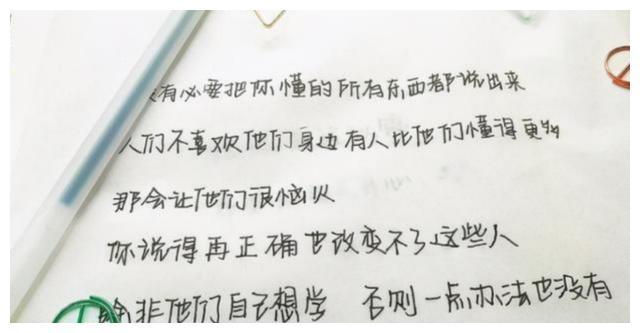 没有必要把你懂的所有东西都说出来
人们不喜欢他们身边有人比他们懂得更多
那会让他们很恼火
你说得再正确也改变不了这些人
除非他们自己想学 否则一点办法也没有